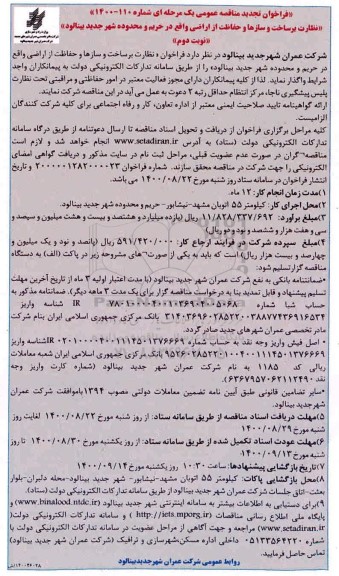 «فراخوان تجدید مناقصه عمومی یک مرحله ای شماره ۱۱۰-۱۴۰۰»
«نظارت برساخت و سازها و حفاظت از اراضی واقع در حریم و محدوده شهر جدید بینالود»
«نوبت دوم»
شرکت عمران شهرجدید بینالود در نظر دارد فراخوان « نظارت برساخت و سازها و حفاظت از اراضی واقع
در حریم و محدوده شهر جدید بینالود» را از طریق سامانه تدارکات الکترونیکی دولت به پیمانکاران واجد
شرایط واگذار نماید. لذا از کلیه پیمانکاران دارای مجوز فعالیت معتبر در امور حفاظتی و مراقبتی تحت نظارت
پلیس پیشگیری ناجا، مرکز انتظام حداقل رتبه ۲ دعوت به عمل می آید در این مناقصه شرکت نمایند.
ارائه گواهینامه تایید صلاحیت ایمنی معتبر از اداره تعاون، کار و رفاه اجتماعی برای کلیه شرکت کنندگان
الزامیست.
کلیه مراحل برگزاری فراخوان از دریافت و تحویل اسناد مناقصه تا ارسال دعوتنامه از طریق درگاه سامانه
تدارکات الکترونیکی دولت (ستاد) به آدرس www.setadiran.ir انجام خواهد شد و لازم است
مناقصه گران در صورت عدم عضویت قبلی، مراحل ثبت نام در سایت مذکور و دریافت گواهی امضای
الکترونیکی را جهت شرکت در مناقصه محقق سازند. شماره فراخوان ۲۰۰۰۰۰۱۲۸۲۰۰۰۰۲۳ و تاریخ
انتشار فراخوان در سامانه ستاد روز شنبه مورخ ۱۴۰۰/۰۸/۲۲ می باشد.
۱)مدت زمان انجام کار: ۱۲ ماه.
۲)محل اجرای کار: کیلومتر ۵۵ اتوبان مشهد-نیشابور- حریم و محدوده شهر جدید بینالود.
۳)مبلغ برآورد: ۱۱/۸۲۸/۳۳۷/۶۹۲ ریال (یازده میلیارد و هشتصد و بیست و هشت میلیون و سیصد و
سی و هفت هزار و ششصد و نود و دو ریال).
۴)مبلغ سپرده شرکت در فرآیند ارجاع کار: ۵۹۱/۴۲۰/۰۰۰ ریال (پانصد و نود و یک میلیون و
چهارصد و بیست هزار ریال) است که باید به یکی از صورت های مشروحه زیر در پاکت (الف) به دستگاه
مناقصه گزار تسلیم شود:
*ضمانتنامه بانکی به نفع شرکت عمران شهر جدید بینالود (با مدت اعتبار اولیه ۳ ماه از تاریخ آخرین مهلت
تسلیم پیشنهاد و قابل تمدید بنا به درخواست مناقصه گزار برای یک مدت ۳ ماهه دیگر). ضمانتنامه مذکور به
مادر تخصصی عمران شهرهای جدید صادر گردد.
ریالی کد ۱۱۸۵ به نام شرکت عمران شهر جدید بینالود (شماره کارت واریز وجه
*سایر تضامین قانونی طبق آیین نامه تضمین معاملات دولتی مصوب ۱۳۹۴ باموافقت شرکت عمران
شهر جدید بینالود.
۵)مهلت دریافت اسناد مناقصه از طریق سامانه ستاد: از روز شنبه مورخ ۱۴۰۰/۰۸/۲۲ لغایت روز
شنبه مورخ ۱۴۰۰/۰۸/۲۹
۶)مهلت عودت اسناد تکمیل شده از طریق سامانه ستاد: از روز یکشنبه مورخ ۱۴۰۰/۰۸/۳۰ تا روز
شنبه مورخ ۱۴۰۰/۰۹/۱۳
۷)تاریخ بازگشایی پیشنهادها: ساعت ۱۰:۳۰ روز یکشنبه مورخ ۱۴۰۰/۰۹/۱۴
۸)محل بازگشایی پاکات: کیلومتر ۵۵ اتوبان مشهد-نیشابور- شهر جدید بینالود-محله دلبران-بلوار
بعثت-اتاق جلسات شرکت عمران شهر جدید بینالود از طریق سامانه تدارکات الکترونیکی دولت (ستاد).
۹)برای دستیابی به اطلاعات بیشتر به سامانه اینترنتی شهر جدید بینالود (www.binalood.ntdc.ir) و
پایگاه ملی اطلاع رسانی مناقصات (http://iets.mporg.ir) و سامانه تدارکات الکترونیکی دولت(
www.setadiran.ir) مراجعه و جهت آگاهی از مراحل عضویت در سامانه تدارکات الکترونیکی دولت با
شماره ۰۵۱۳۳۵۶۴۲۲۰ داخلی اداره مسکن،شهرسازی و ترافیک (شرکت عمران شهر جدید بینالود)
تماس حاصل فرمایید.
روابط عمومی شرکت عمران شهرجدیدبینالود